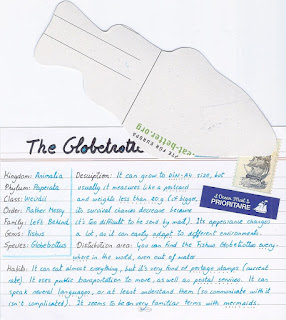 FOR EUROPE
eat-better.org
The Globetrotter
A Prior, Mond &
PRIORITAIRE
Kingdom: Animalia
Phylum: Paperata
Class: Weirdii
Order: Rather Messy
Family: Left Behind
Genus: Fishus
Species: Globetottus
Description: It can grow to DIN-A4 size, but
usually it measures like a postcard
and weights less than 20 g (if bigger,
its survival chances decrease because
it's too difficult to be sent by mail). Its appearance changes
a lot, as it can easily adapt to different environments.
Distribution area: You can find the Fishus Globetottus every-
where in the world, even out of water
Habits: It can eat almost everything, but it's very fond of postage stamps (current
rate). It uses public transportation to move, as well as postal services. It can
speak several languages, or at least understand them (so communicate with it
isn't complicated). It seems to be on very familiar terms with mermaids.